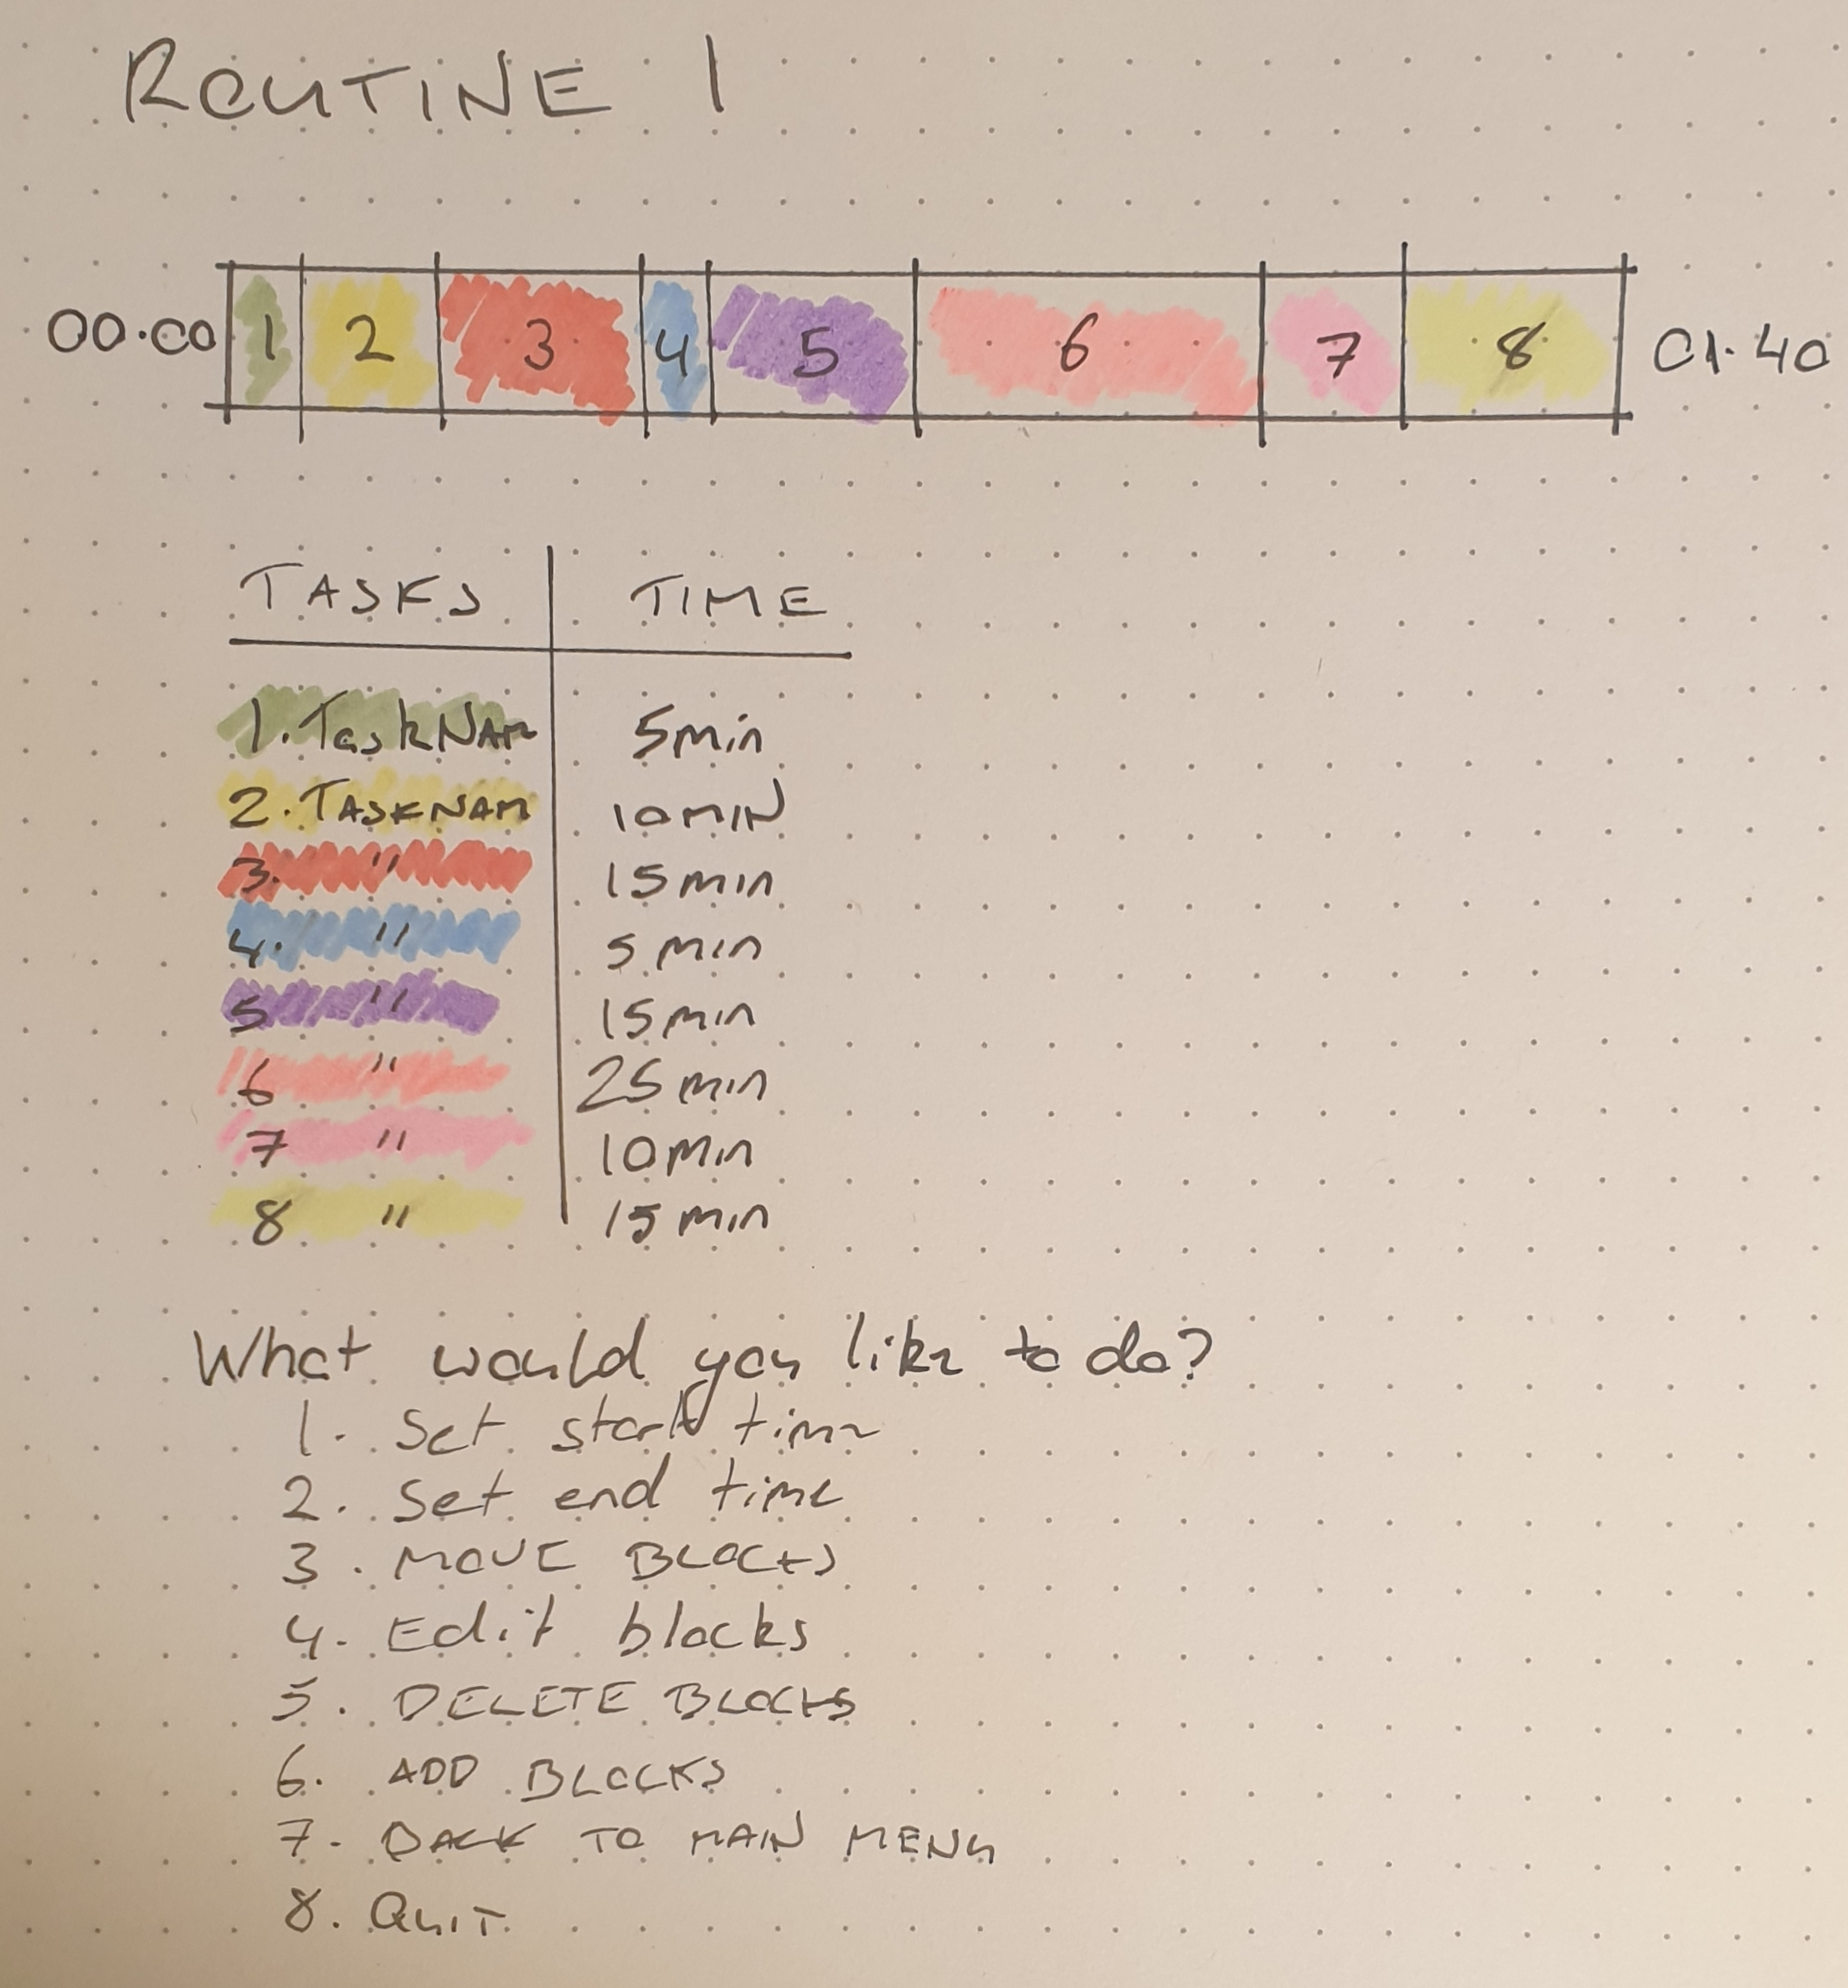 ROUTINE 1
00.00 1 2 3 4 5 6 7 8 01.40
TASKS TIME
1. TaskNAM 5min
2. TASKNAM 10MIN
3. " 15min
4. " 5 min
5 " 15min
6 " 25min
7 " 10Min
8 " 15min
What would you like to do?
1. Set start time
2. Set end time
3. MOVE BLOCKS
4. Edit blocks
5. DELETE BLOCKS
6. ADD BLOCKS
7. BACK TO MAIN MENU
8. QUIT